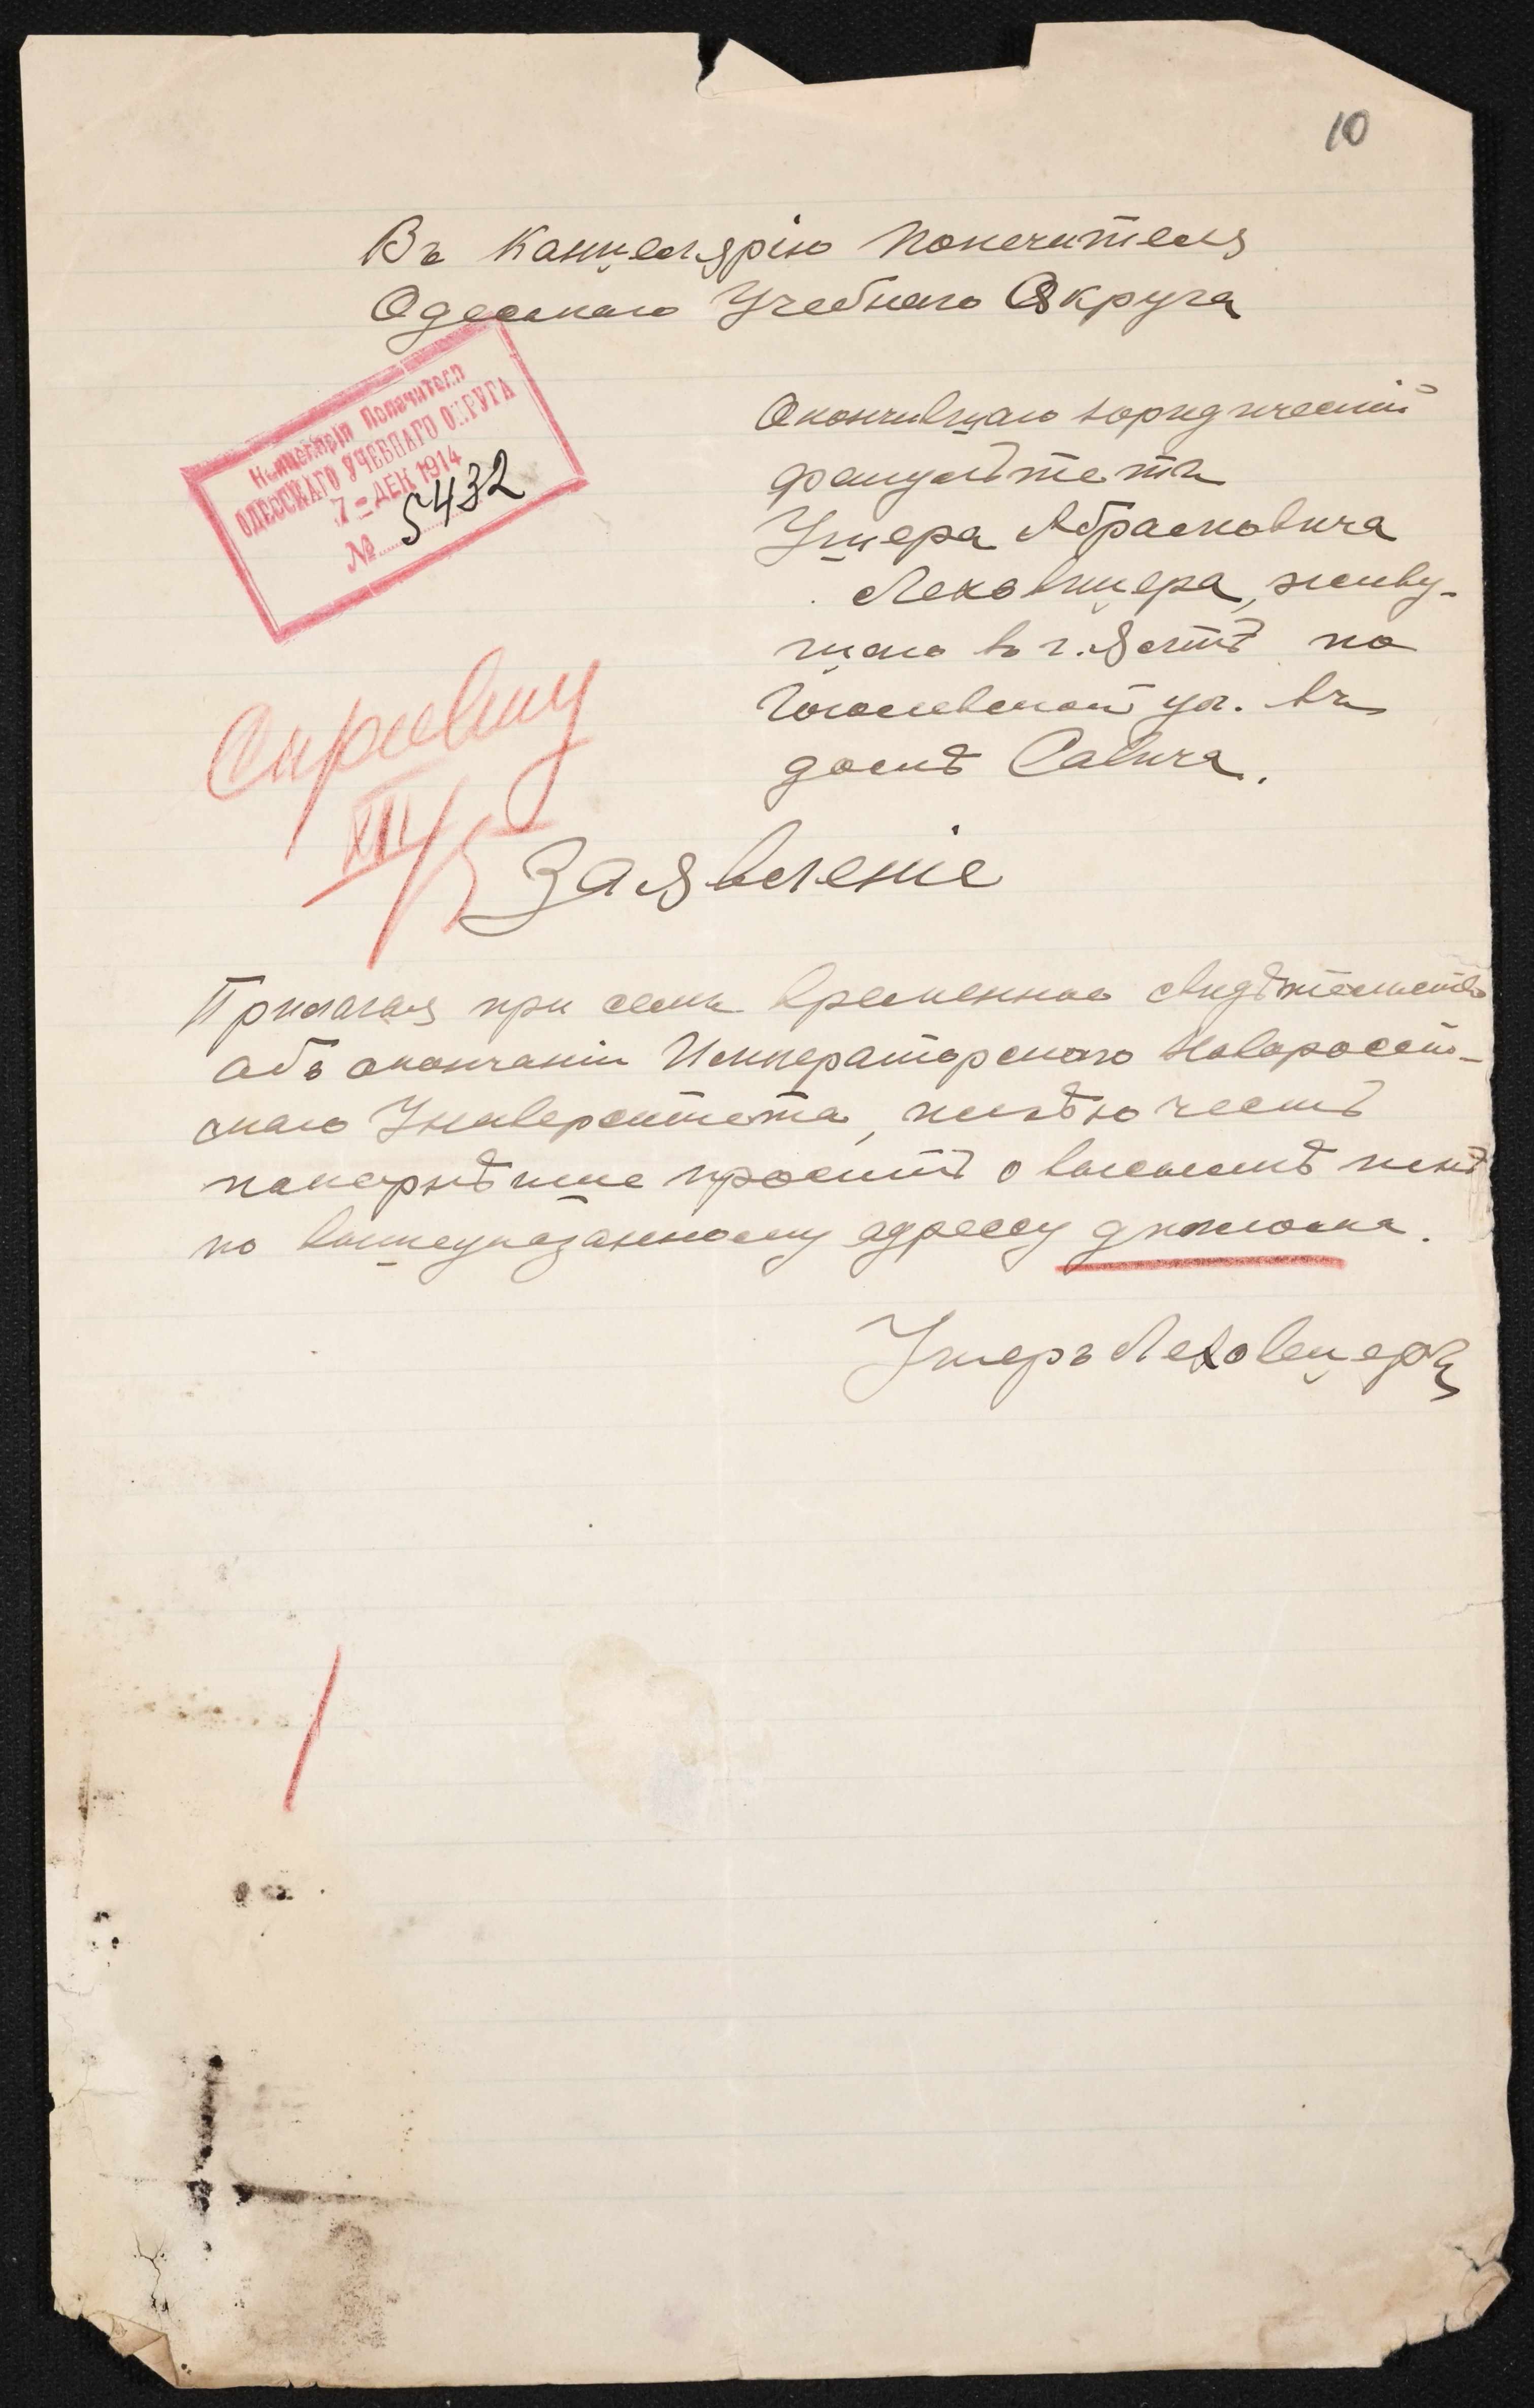 10
Въ Канцелярію Попечителя
Одесскаго Учебнаго Округа
Канцелярія Попечителя
ОДЕССКАГО УЧЕБНАГО ОКРУГА
7 - ДЕК 1914
№ 5432
Окончившаго юридическій
факультетъ
Ушера Абрамовича
Леховицера, живу-
щаго въ г. Ялтѣ по
Гоголевской ул. въ
домѣ Савича.
Справку
XII/5
Заявленіе
Прилагая при семъ временное свидѣтельство
объ окончаніи Императорскаго Новороссій-
скаго Университета, имѣю честь
покорнѣйше просить о высылкѣ мнѣ
по вышеуказанному адрессу диплома.
Ушеръ Леховицеръ